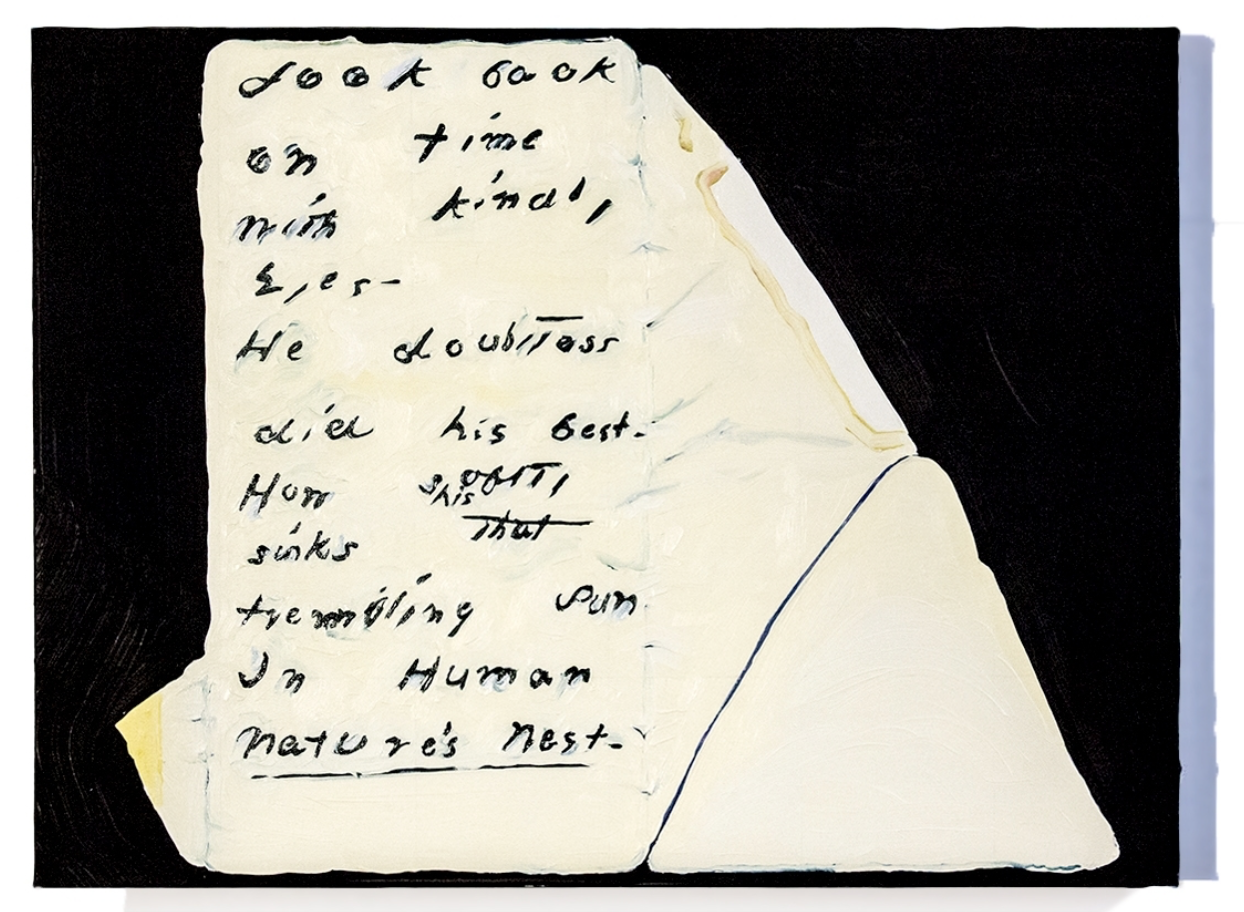 Look back
on time
with kindly
Eyes-
He doubtless
did his best-
How softly
his
sinks that
trembling Sun
In Human
nature's West-